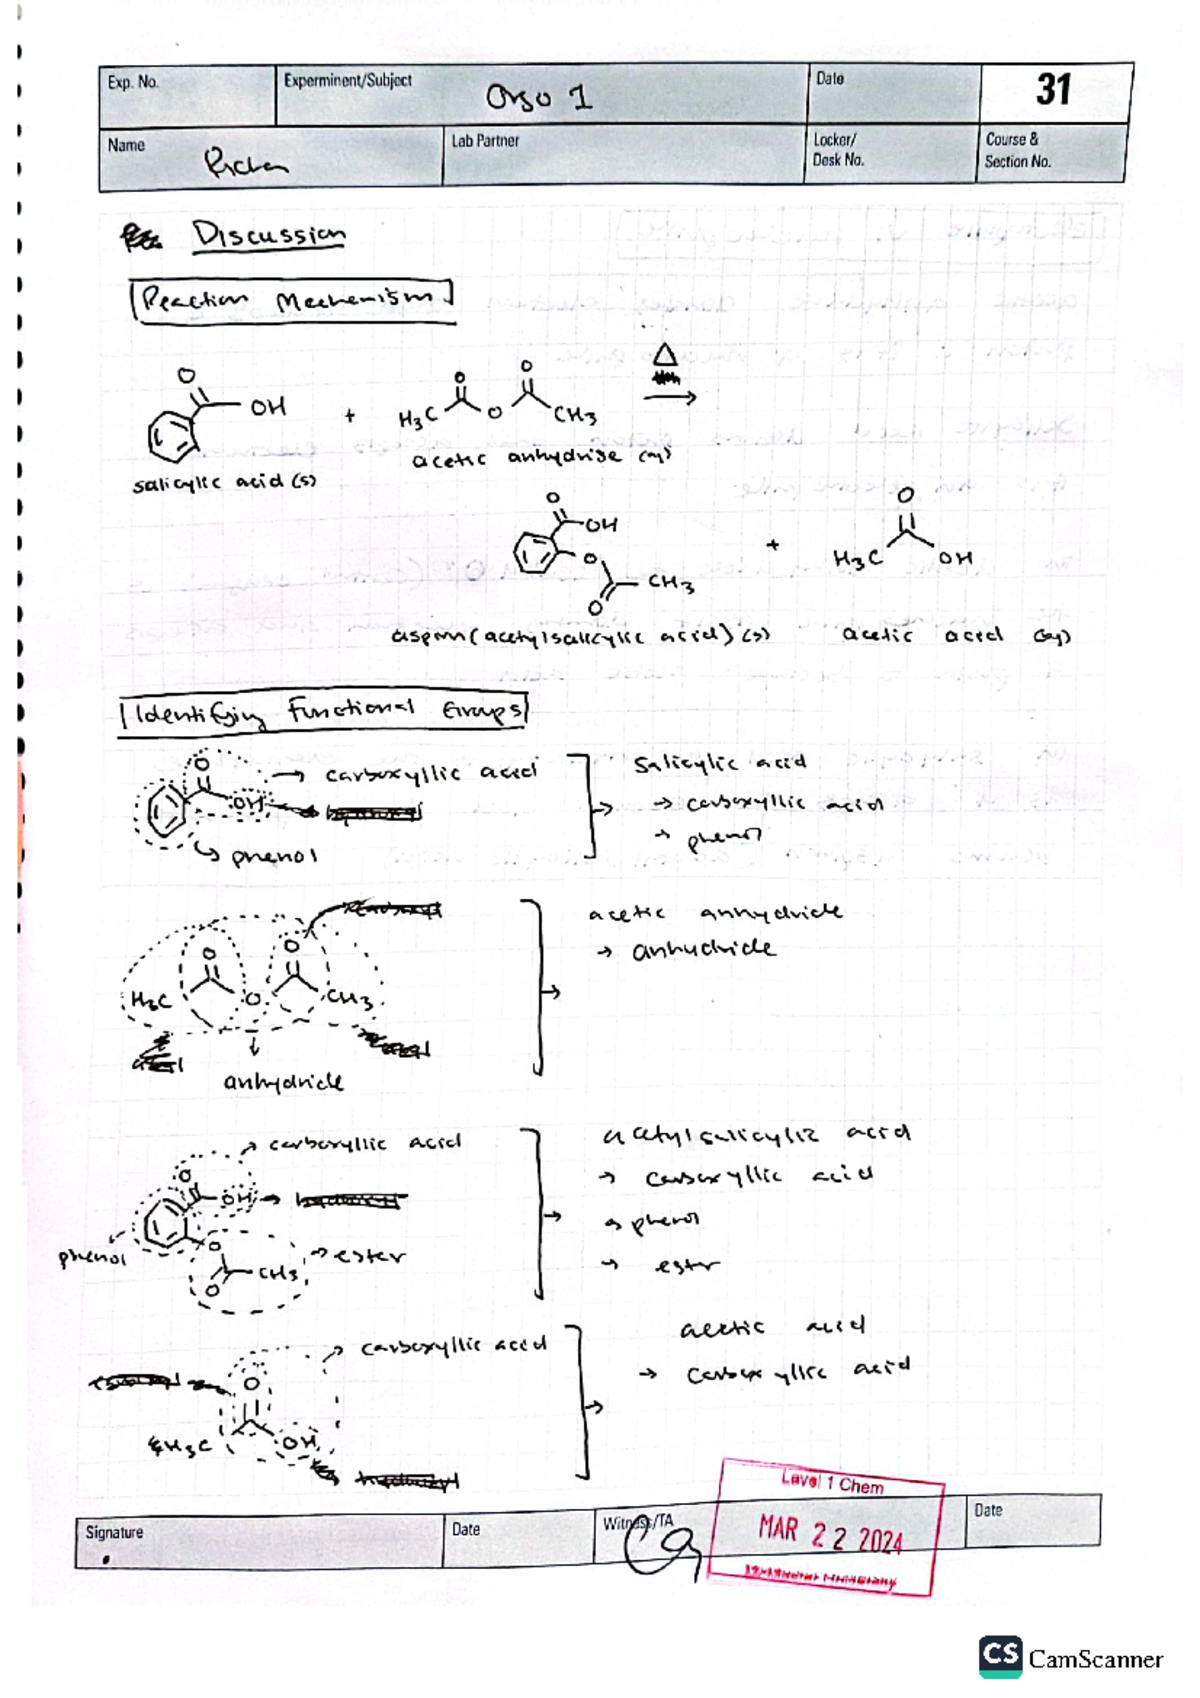 Exp. No.
Experiment/Subject
Orgo 1
Date
31
Name
Lab Partner
Locker/
Desk No.
Course &
Section No.
Discussion
Reaction Mechemism
O
OH
+
H₃C
O
O
O
CH₃
△
salicylic acid (s)
acetic anhydride (aq)
O
OH
O
O
CH₃
+
O
H₃C
OH
aspirin (acetylsalicylic acid) (s)
acetic acid (aq)
Identifying Functional Groups
O
OH
→ carboxyllic acid
phenol
Salicylic acid
→ carboxyllic acid
→ phenol
H₃C
O
O
O
CH₃
anhydride
acetic anhydride
→ anhydride
→ carboxyllic acid
O
OH
phenol
O
O
CH₃
→ ester
acetylsalicylic acid
→ carboxyllic acid
→ phenol
→ ester
→ carboxyllic acid
O
H₃C
OH
acetic acid
→ carboxyllic acid
Signature
Date
Witness/TA
Level 1 Chem
MAR 22 2024
Date
CS CamScanner